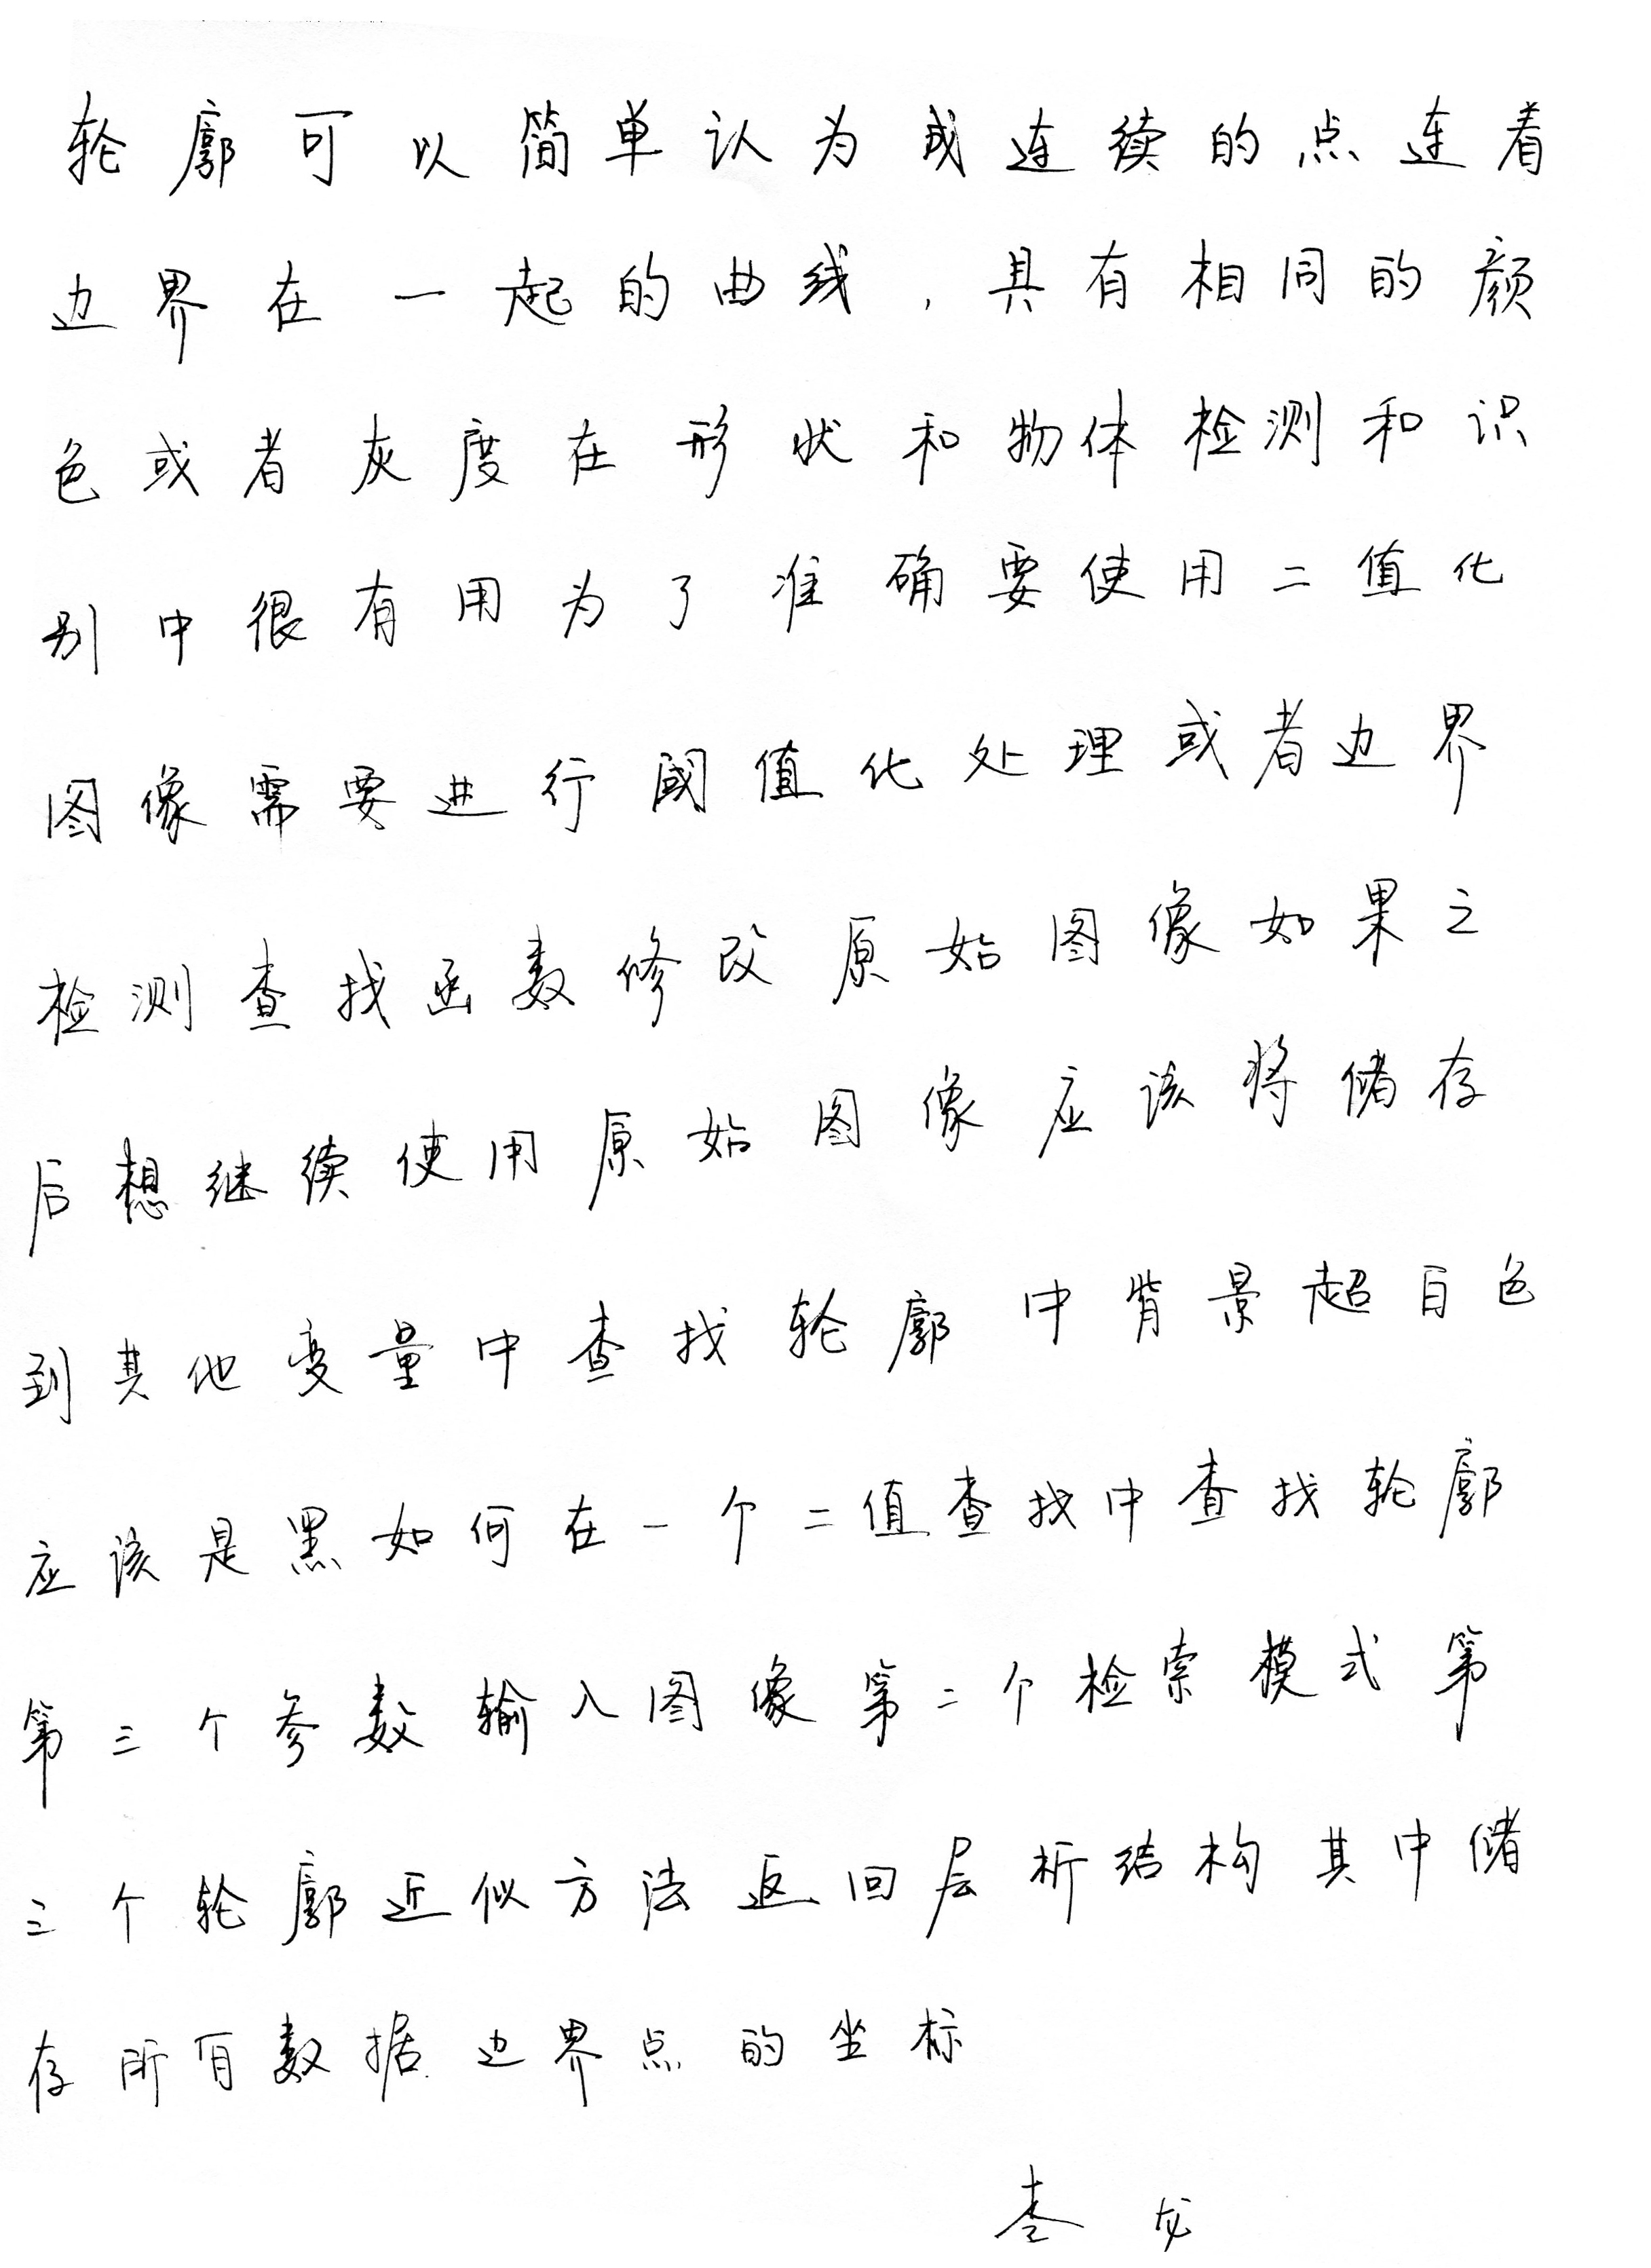 轮廓可以简单认为成连续的点连着
边界在一起的曲线，具有相同的颜
色或者灰度在形状和物体检测和识
别中很有用为了准确要使用二值化
图像需要进行阈值化处理或者边界
检测查找函数修改原始图像如果之
后想继续使用原始图像应该将储存
到其他变量中查找轮廓中背景超白色
应该是黑如何在一个二值查找中查找轮廓
第三个参数输入图像第二个检索模式第
三个轮廓近似方法返回层析结构其中储
存所有数据边界点的坐标
龙